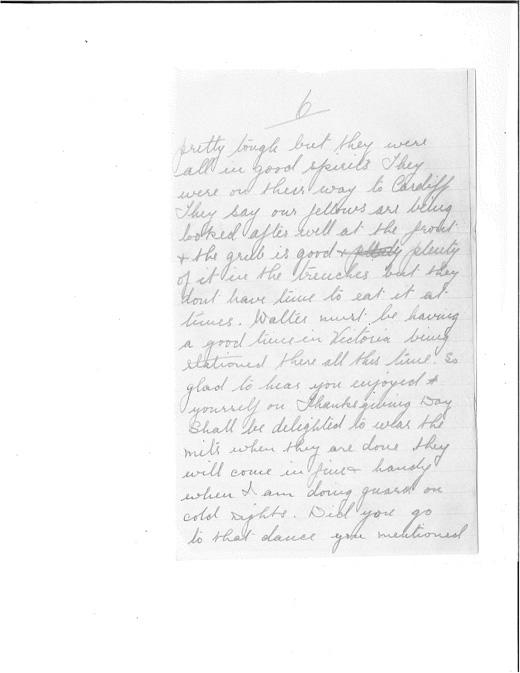 6
pretty tough but they were
all in good spirits They
were on their way to Cardiff
They say our fellows are being
looked after well at the front
& the grub is good & plenty
of it in the trenches but they
dont have time to eat it at
times. Walter must be having
a good time in Victoria being
stationed there all this time. So
glad to hear you enjoyed
yourself on Thanksgiving Day
Shall be delighted to wear the
mits when they are done they
will come in fine & handy
when I am doing guard on
cold nights. Did you go
to that dance you mentioned